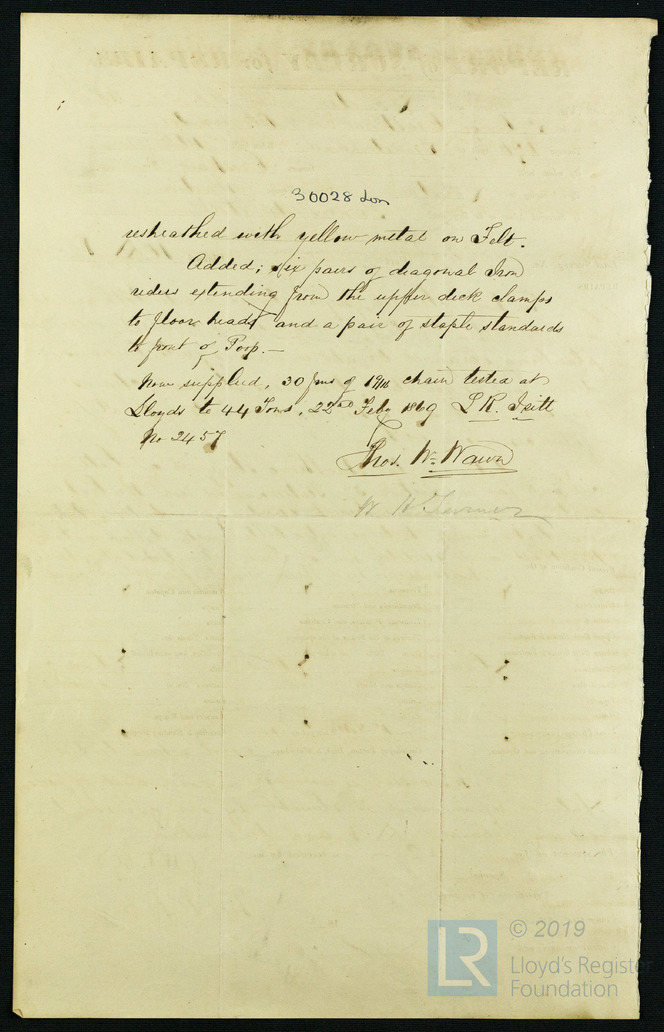 30028 Lon
resheathed with yellow metal on Felt.
Added; six pairs of diagonal Iron
riders extending from the upper deck clamps
to floor heads and a pair of staple standards
to front of Poop.—
Now supplied, 30 fms of chain tested at
Lloyds to 44 Tons, 22nd Feby 1869 L R.
No 2457
Thos. W. Wawn
W H Turner
© 2019
LR
Lloyd's Register
Foundation